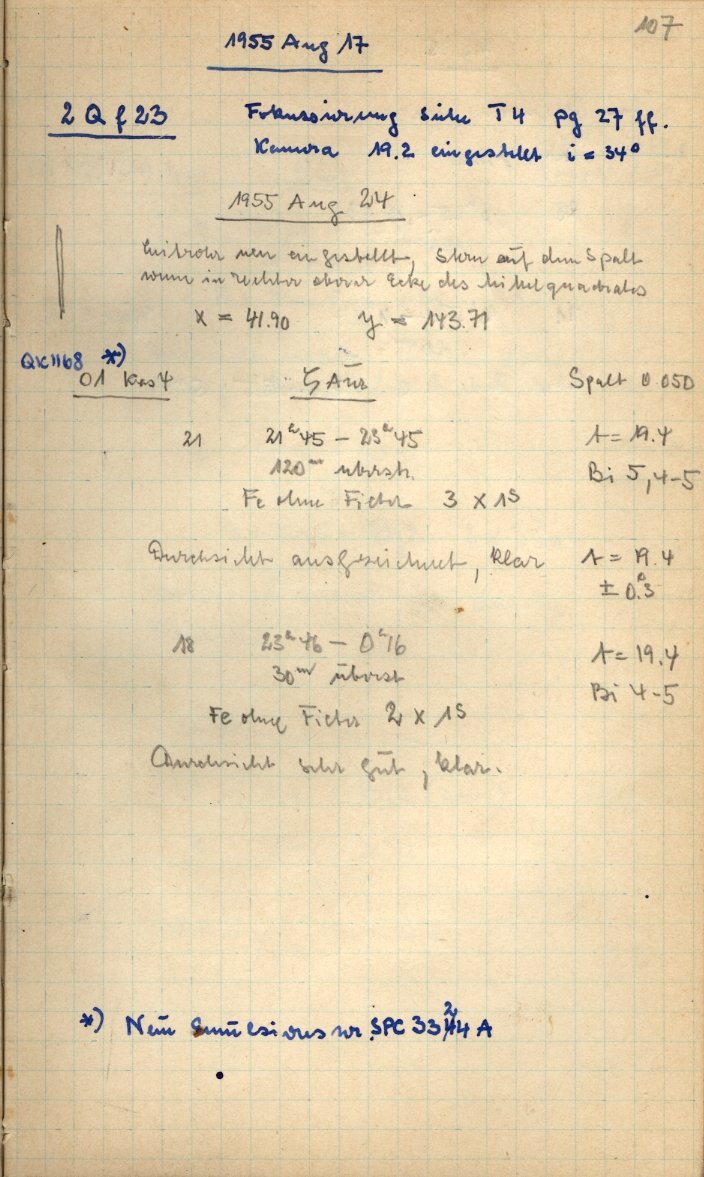 107
1955 Aug 17
2 Q f 23 Fokussierung siehe T4 pg 27 ff.
Kamera 19.2 eingestellt i = 34°
1955 Aug 24
Leitrohr neu eingestellt, Stern auf dem Spalt
wenn in rechter oberer Ecke des Mittelquadrates
x = 41.90 y = 143.71
QK1168 *)
01 Kas 4 ζ Aur Spalt 0.050
21 21ʰ45 – 23ʰ45 t = 19.4
120ᵐ überstr. Bi 5, 4-5
Fe ohne Filter 3 x 1ˢ
Durchsicht ausgezeichnet, klar t = 19.4
± 0.3
18 23ʰ46 – 0ʰ16 t = 19.4
30ᵐ überst Bi 4-5
Fe ohne Filter 2 x 1ˢ
Durchsicht sehr gut, klar.
*) Neue Emulsions nr. SPC 33 4 A